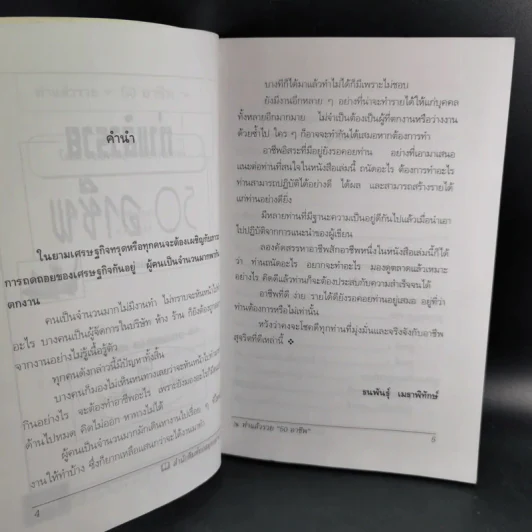 คำนำ
ในยามเศรษฐกิจทรุดหรือทุกคนจะต้องเผชิญกับภาวะ
การถดถอยของเศรษฐกิจกันอยู่ ผู้คนเป็นจำนวนมากพากัน
ตกงาน
คนเป็นจำนวนมากไม่มีงานทำ ไม่ทราบจะหันหน้าไป
อะไร บางคนเป็นผู้จัดการในบริษัท ห้าง ร้าน ก็ยังต้อง
จากงานอย่างไม่รู้เนื้อรู้ตัว
ทุกคนดังกล่าวนี้มีปัญหาทั้งสิ้น
บางคนก็มองไม่เห็นหนทางเลยว่าจะหันหน้าไป
กันอย่างไร จะต้องทำอาชีพอะไร เพราะยังมองอะไร
ด้านไปหมด คิดไม่ออก หาทางไม่ได้
ผู้คนเป็นจำนวนมักเดินหางานไปเรื่อย ๆ
งานให้ทำบ้าง ซึ่งก็ยากเหลือแสนกว่าจะได้งานมาทำ
4
บางทีก็ได้มาแล้วทำไม่ได้ก็มีเพราะไม่ชอบ
ยังมีงานอีกหลาย ๆ อย่างที่น่าจะทำรายได้ให้แก่บุคคล
ทั้งหลายอีกมากมาย ไม่จำเป็นต้องเป็นผู้ที่ตกงานหรือว่างงาน
ด้วยซ้ำไป ใคร ๆ ก็อาจจะทำกันได้เสมอหากต้องการทำ
อาชีพอิสระที่มีอยู่ยังรอคอยท่าน อย่างที่เอามาเสนอ
แนะต่อท่านที่สนใจในหนังสือเล่มนี้ ถนัดอะไร ต้องการทำอะไร
ท่านสามารถปฏิบัติได้อย่างดี ได้ผล และสามารถสร้างรายได้
แก่ท่านอย่างดียิ่ง
มีหลายท่านที่มีฐานะความเป็นอยู่ดีกันไปแล้วเมื่อนำเอา
ไปปฏิบัติจากการแนะนำของผู้เขียน
ลองคัดสรรหาอาชีพสักอาชีพหนึ่งในหนังสือเล่มนี้ก็ได้
ว่า ท่านถนัดอะไร อยากจะทำอะไร มองดูตลาดแล้วเหมาะ
อย่างไร คิดดีแล้วท่านก็จะต้องประสบกับความสำเร็จจนได้
อาชีพที่ดี ง่าย รายได้ดียังรอคอยท่านอยู่เสมอ อยู่ที่ว่า
ท่านต้องการหรือไม่เท่านั้น
หวังว่าคงจะโชคดีทุกท่านที่มุ่งมั่นและจริงจังกับอาชีพ
สุจริตที่ดีเหล่านี้ ❖
ธนพันธุ์ เมธาพิทักษ์
ทำแล้วรวย "50 อาชีพ"
5